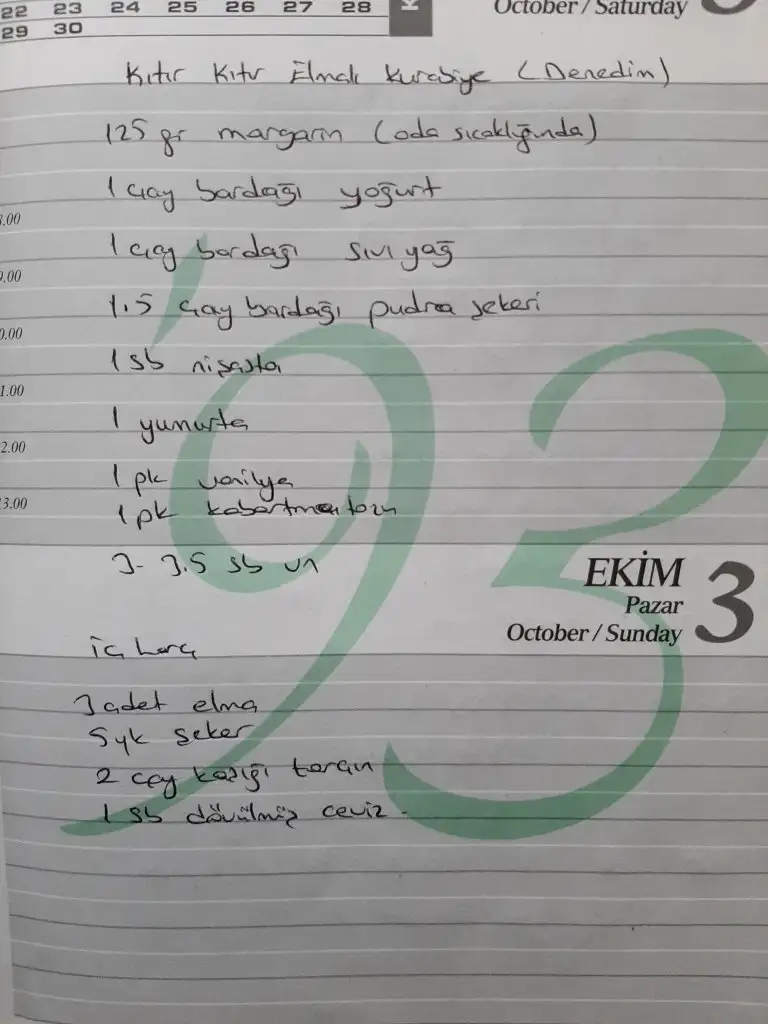 22 23 24 25 26 27 28
29 30
K
October / Saturday
Kıtır Kıtır Elmalı Kurabiye (Denedim)
125 gr margarin (oda sıcaklığında)
1 çay bardağı yoğurt
8.00
1 çay bardağı sıvı yağ
9.00
1.5 çay bardağı pudra şekeri
10.00
1 sb nişasta
11.00
1 yumurta
12.00
1 pk vanilya
13.00
1 pk kabartma tozu
3- 3.5 sb un
'93
EKİM 3
Pazar
October / Sunday
İç harç
3 adet elma
5 yk şeker
2 çay kaşığı tarçın
1 sb dövülmüş ceviz.